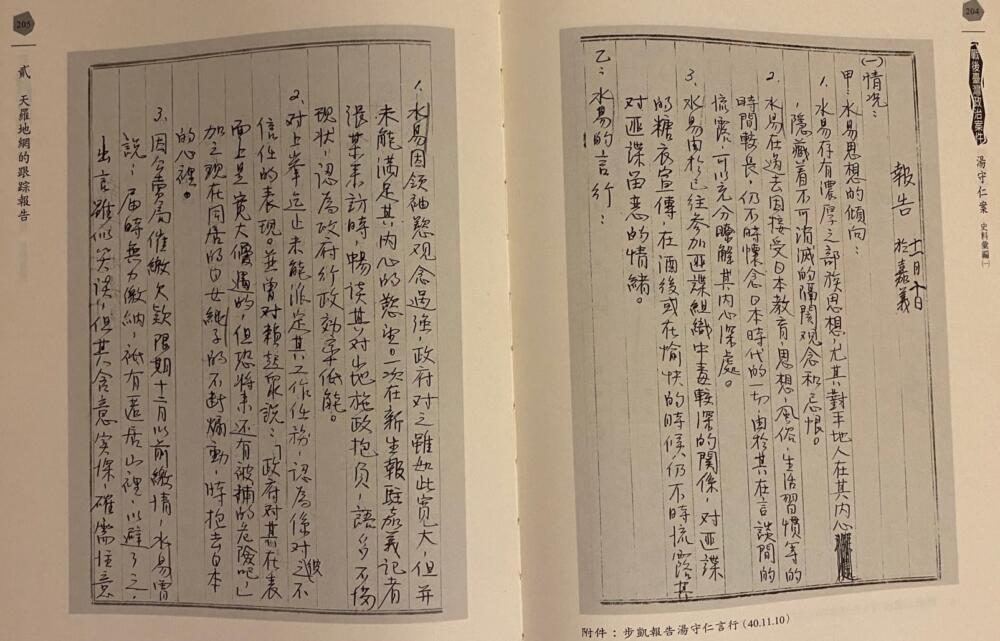 204
戰後臺灣政治案件
湯守仁案
史料彙編(一)
報告
十一月十日
於嘉義
(一)情況：
甲：水易思想的傾向：
1.水易存有濃厚之部族思想，尤其對平地人在其內心
，隱藏着不可消滅的隔閡观念和忌恨。
2.水易在過去因接受日本教育，思想，風俗，生活習慣等的
時間較長，仍不時懷念日本時代的一切，由於其在言談間的
流露，可以充分瞭解其內心深處。
3.水易由於已往參加匪諜組織中毒較深的關係，对匪諜
的糖衣宣傳，在酒後或在愉快的時候仍不時流露其
对匪諜留恋的情緒。
乙：水易的言行：
附件：步凱報告湯守仁言行(40.11.10)
205
貳 天羅地網的跟踪報告
1.水易因領袖慾观念過強，政府对之雖如此寬大，但并
未能滿足其內心的慾望。一次在新生報駐嘉義記者
張某來訪時，暢談其对山地施政抱負，語多不滿
現状，認為政府行政効率低能。
2.对上峯迄止未能派定其工作任務，認為係对彼不
信任的表現。並曾对賴起眾說：「政府对其在表
面上是寬大優遇的，但恐將來还有被補的危險吧」
加之現在同居的日女純子的不断煽動，時抱去日本
的心裡。
3.因合當局催繳欠欵限期十二月以前繳清，水易曾
說：屆時無力繳納，祇有匿居山裡，以避了之，
出言雖似笑談，但其含意实深，確需注意